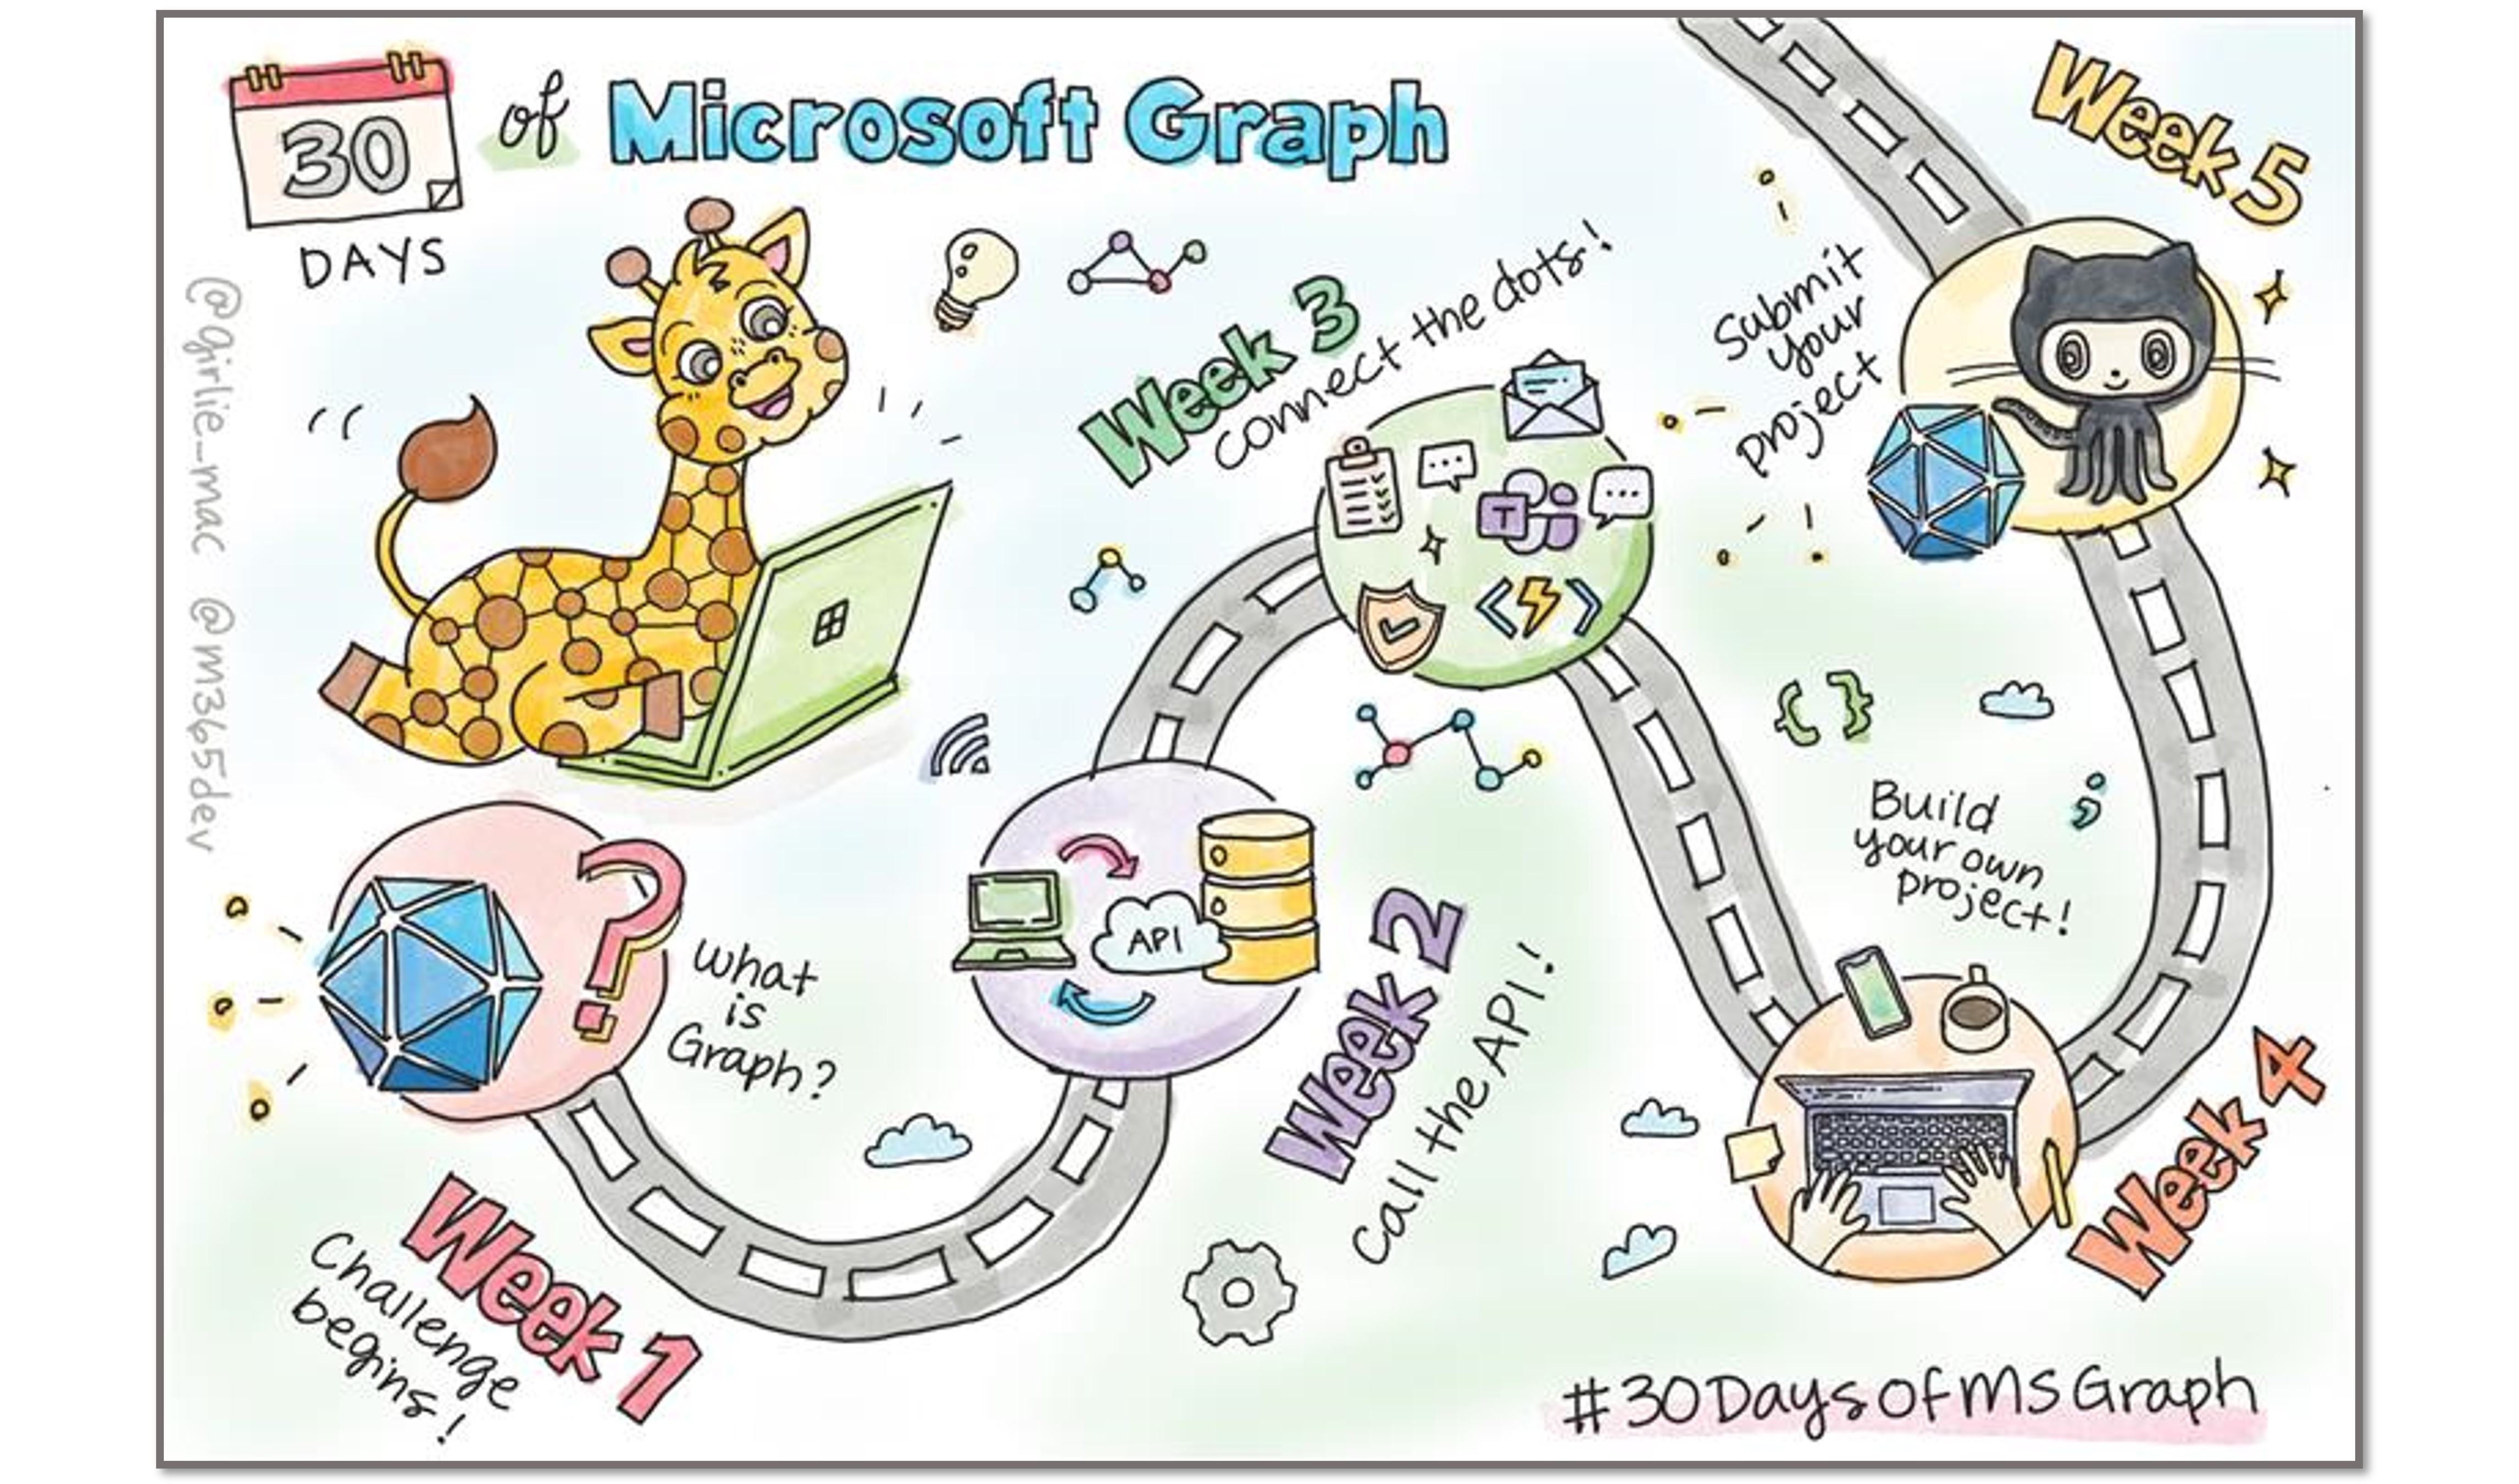 30
DAYS
of Microsoft Graph
@girlie_mac @m365dev
Week 1
Challenge
begins!
What
is
Graph?
API
Week 2
Call the API!
Week 3
Connect the dots!
T
Week 4
Build
your own
project!
Week 5
Submit
your
project
#30DaysOfMSGraph